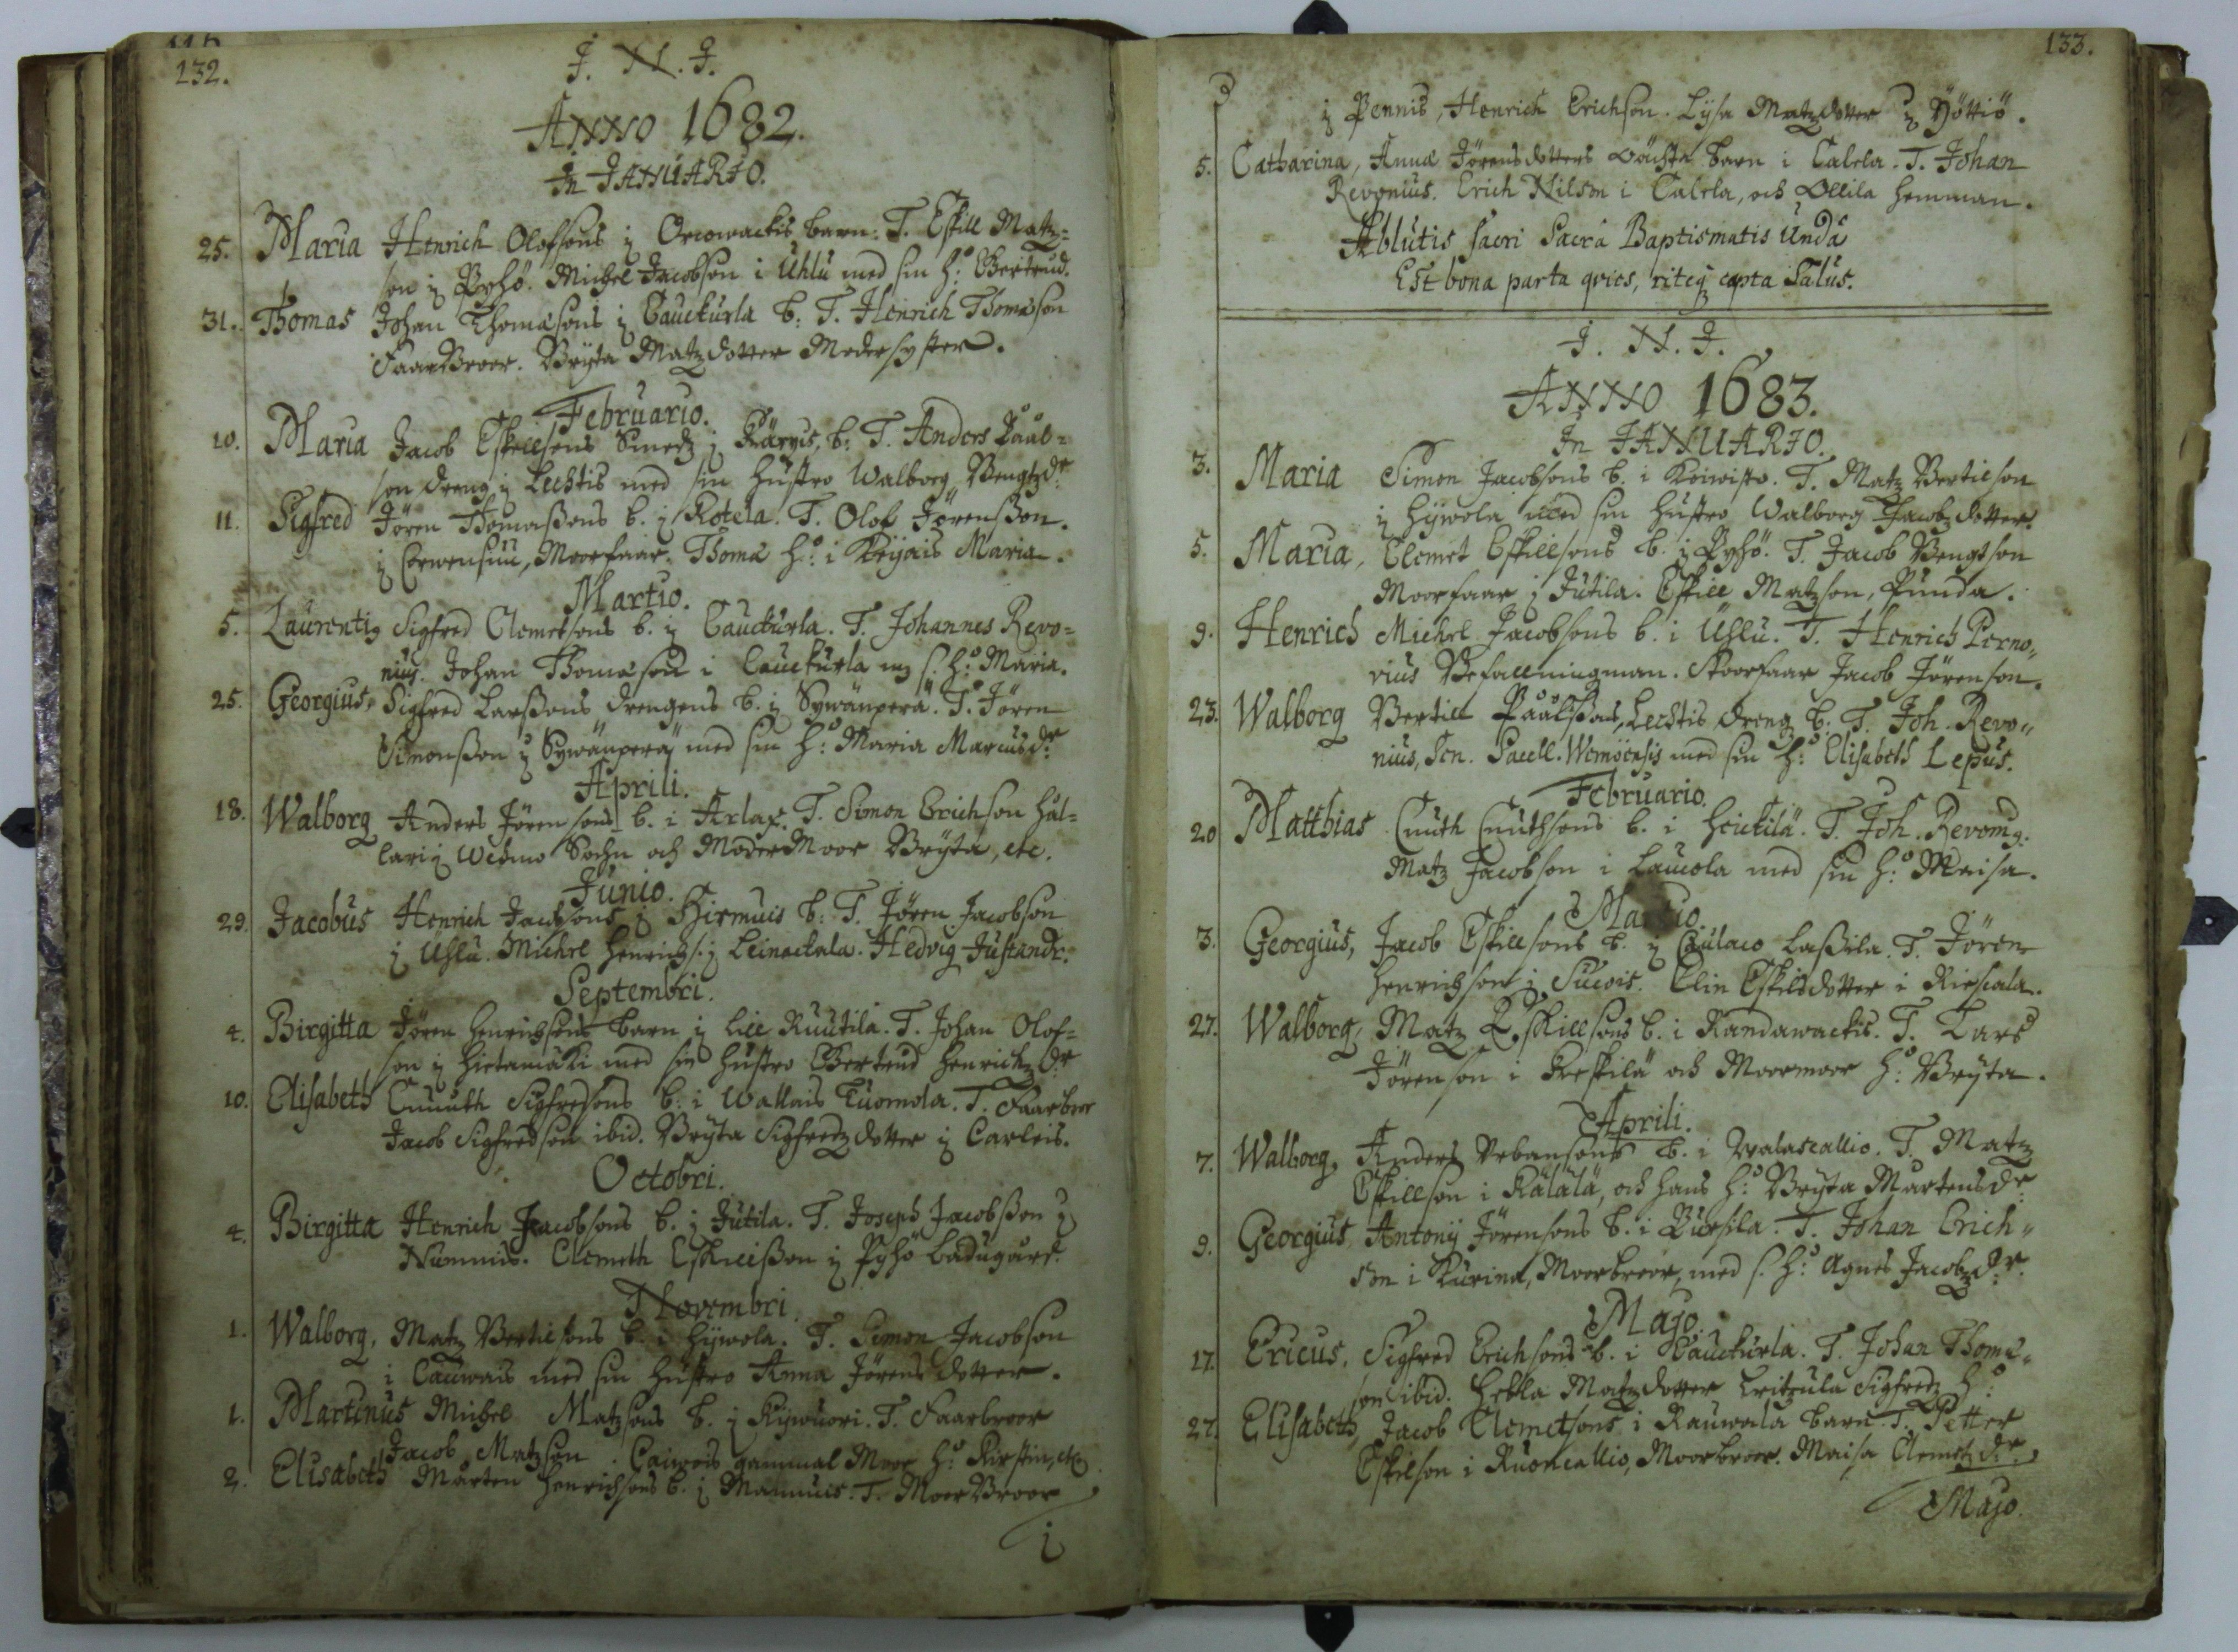 132.
J. N. J.
ANNO 1682.
In JANUARIO.
25. Maria Henrich Olofsons i Orowackis barn. T. Eskill Matz=
son i Pyhö. Michel Jacobson i Uhlu med sin h:o Gertrud.
31. Thomas Johan Thomasons i Cauckurla b: T. Henrich Thomason
FaarBroor. Bryta Matzdotter Modersyster.
Februario.
10. Maria Jacob Eskillsons Smedz i Kärpis, b: T. Anders Påål=
son dreng i Lechtis med sin hustro Walborg Bengtzdr.
11. Sigfred Jören Thomaßons b. i Kotela. T. Olof Jörenßon.
i Corwensuu, Moorfaar. Thoma h:o i Keijais Maria.
Martio.
5. Laurenti9 Sigfred Clemetsons b. i Cauckurla. T. Johannes Revo=
nius. Johan Thomason i Cauckurla m3 s. h:o Maria.
25. Georgius, Sigfred Larßons drengens b. i Sywänperä. T. Jören
Simonßon i Sywänperä med sin h:o Maria Marcusdr.
Aprili.
18. Walborg Anders Jörensons b. i Arlax. T. Simon Erichson Hal=
lari i Wehmo Sochn och ModerMoor Bryta, etc.
Junio.
29. Jacobus Henrich Jacobsons i Hirmuis b: T. Jören Jacobson
i Uhlu. Michel Henrichs. i Leinackala. Hedvig Justandr.
Septembri.
4. Birgitta Jören Henrichsons barn i Lill Ruutila. T. Johan Olof=
son i Hietamäki med sin hustro Gertrud Henrichzdr
10. Elisabeth Cnuuth Sigfredsons b. i Wallais Tuomola. T. Faarbror
Jacob Sigfredson ibid. Bryta Sigfredzdotter i Carleis.
Octobri.
4. Birgitta Henrich Jacobsons b. i Jutila. T. Joseph Jacobßon i
Nummis. Clemeth Eskillßon i Pyhö Ladugård.
Novembri.
1. Walborg, Matz Bertilsons b. i Hijwola. T. Simon Jacobson
i Cauwais med sin hustro Anna Jörensdotter.
1. Martinus Michel Matzsons b. i Kijwuori. T. Faarbroor
Jacob Matzson. Caiwois gammal Moor h:o Kirstin, etc
2. Elisabeth Mårten Henrichsons b. i Mannuis. T. MoorBroor
i
133.
i Pennis, Henrich Erichson. Lysa Matzdotter i Höttiö.
5. Catharina, Anna Jörensdotters oächta barn i Calela. T. Johan
Revonius. Erich Nilson i Calela, och Ollila hemman.
Ablutis sacri Sacrâ Baptismatis Undâ
Est bona parta qvies, riteq3 capta Salus.
J. N. J.
ANNO 1683.
In JANUARIO.
3. Maria Simon Jacobsons b. i Koiwisto. T. Matz Bertilson
i Hijwola med sin hustro Walborg Jacobzdotter.
5. Maria, Clemet Eskillsons b. i Pyhö. T. Jacob Bengtson
Moorfaar i Jutila. Eskill Matzson, Punda.
9. Henrich Michel Jacobsons b. i Uhlu. T. Henrich Perno=
vius Befallningman. Stoorfaar Jacob Jörenson.
23. Walborg Bertill Påålßons, Lechtis dreng b: T. Joh. Revo=
nius, Sen. Sacell. Wemöensis med sin h:o Elisabeth Lepus.
Februario.
20 Matthias Cnuth Cnuthsons b. i Heickilä. T. Joh. Revoni9.
Matz Jacobson i Laucola med sin h:o Maisa.
Martio.
3. Georgius, Jacob Eskillsons b. i Caulaco Laßila. T. Jören
Henrichson i Sucois. Elin Eskilsdotter i Riescala.
27. Walborg, Matz Eskillsons b. i Randawackis. T. Lars
Jörenson i Keskilä och Moormoor h:o Bryta.
Aprili.
7. Walborg, Anders Urbansons b. i Walascallio. T. Matz
Eskillson i Kälälä, och hans h:o Bryta Martensdr
9. Georgius Antonij Jörensons b. i Pursila. T. Johan Erich=
son i Kurina, Moorbroor, med s. h:o Agnes Jacobzdr.
Majo.
17. Ericus, Sigfred Erichsons b. i Cauckurla. T. Johan Thoma=
son ibid. Hebla Matzdotter Leitzula Sigfredz h:o
27. Elisabeth, Jacob Clemetsons i Rauwala barn. T. Petter
Eskilson i Ruoncallio, Moorbroor. Maisa Clemetzdr.
Majo.